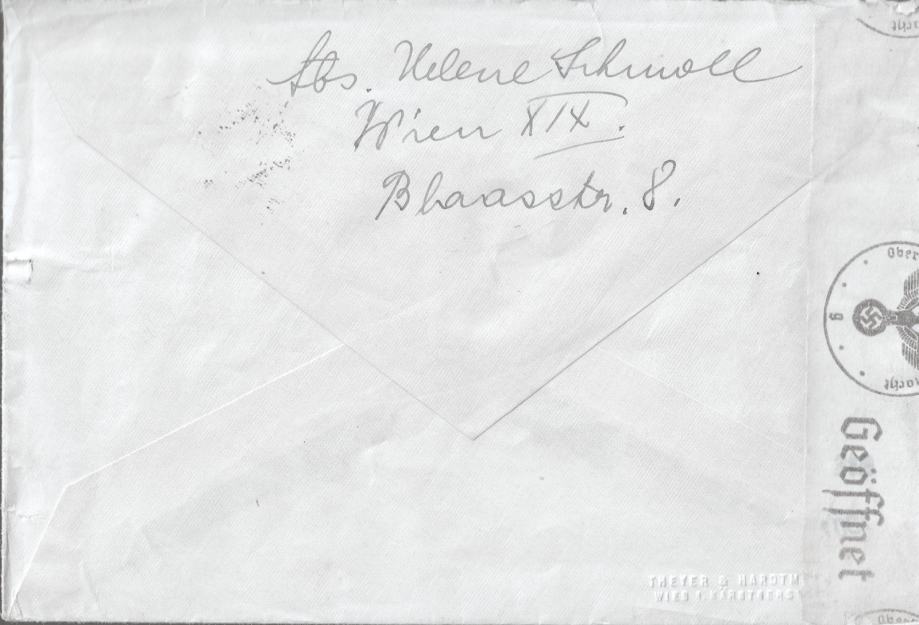 Abs. Helene Schmoll
Wien XIX.
Blaasstr. 8.
Geöffnet
THEYER & HARDTM
WIEN I. KÄRNTNERS
Ober
g